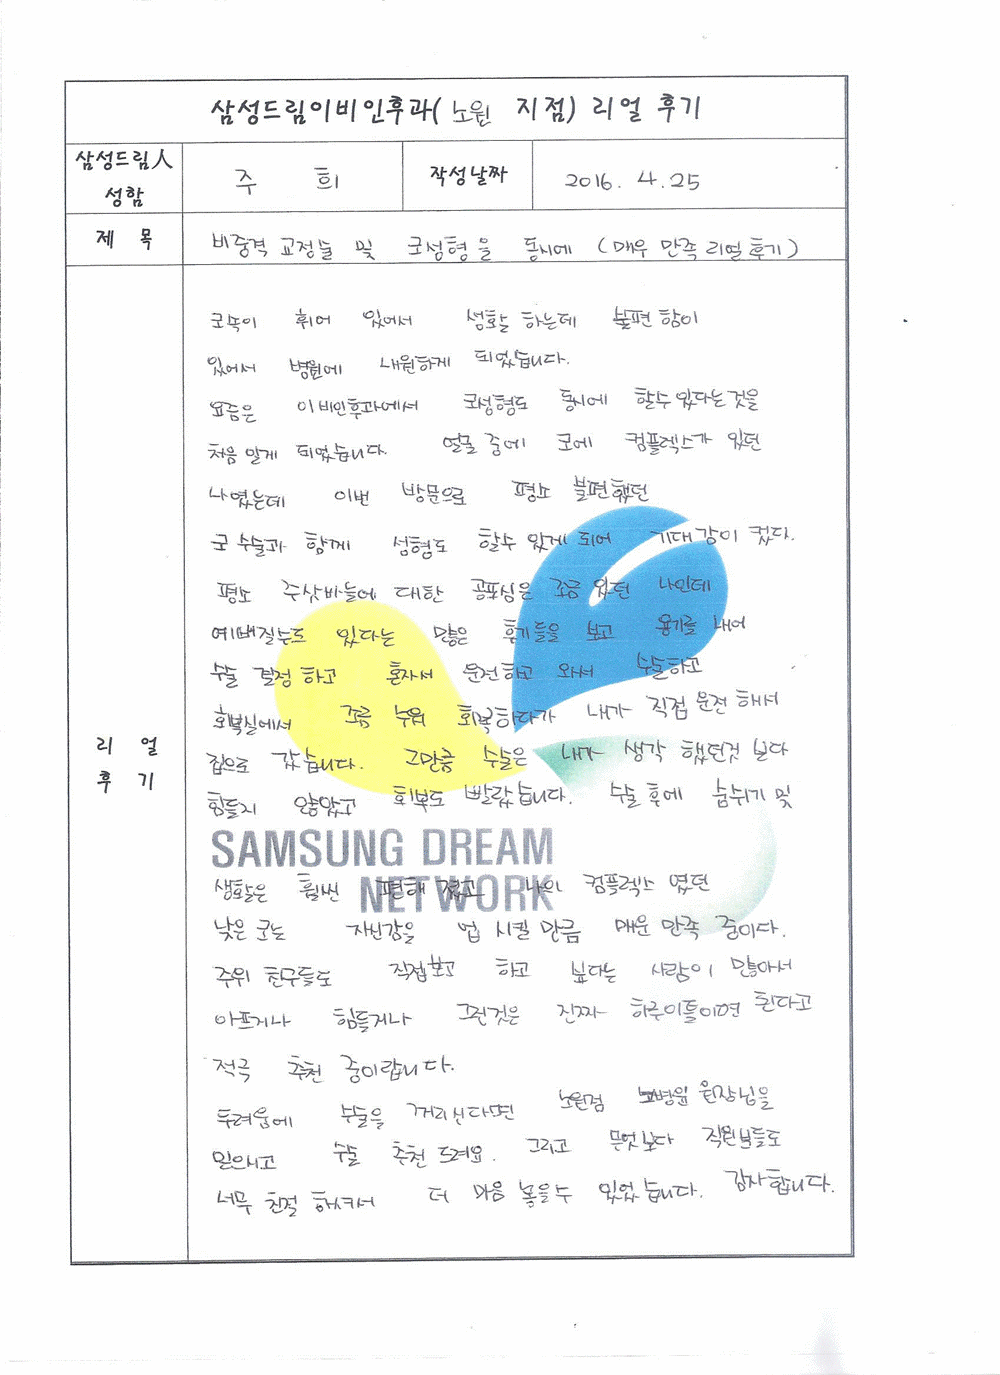 삼성드림이비인후과( 노원 지점) 리얼 후기
삼성드림人
성함
주 희
작성날짜
2016. 4.25
제 목
비중격 교정술 및 코성형을 동시에 (매우 만족 리얼후기)
리 얼
후 기
코속이 휘어 있어서 생활 하는데 불편함이
있어서 병원에 내원하게 되었습니다.
요즘은 이비인후과에서 코성형도 동시에 할수있다는것을
처음 알게 되었습니다. 얼굴 중에 코에 컴플렉스가 있던
나였는데 이번 방문으로 평소 불편했던
코 수술과 함께 성형도 할수 있게 되어 기대감이 컸다.
평소 주삿바늘에 대한 공포심은 조금 있던 나인데
예뻐질수도 있다는 많은 후기들을 보고 용기를 내어
수술 결정 하고 혼자서 운전하고 와서 수술하고
회복실에서 조금 누워 회복하다가 내가 직접 운전 해서
집으로 갔습니다. 그만큼 수술은 내가 생각 했던것 보다
힘들지 않았고 회복도 빨랐습니다. 수술 후에 숨쉬기 및
SAMSUNG DREAM
NETWORK
생활은 훨씬 편해 졌고 나의 컴플렉스 였던
낮은 코는 자신감을 업 시킬 만큼 매우 만족 중이다.
주위 친구들도 직접보고 하고 싶다는 사람이 많아서
아프거나 힘들거나 그런것은 진짜 하루이틀이면 된다고
적극 추천 중이랍니다.
두려움에 수술을 꺼리신다면 노원점 원장님을
믿으시고 수술 추천 드려요. 그리고 무엇보다 직원분들도
너무 친절 하셔서 더 마음 놓을수 있었습니다. 감사합니다.